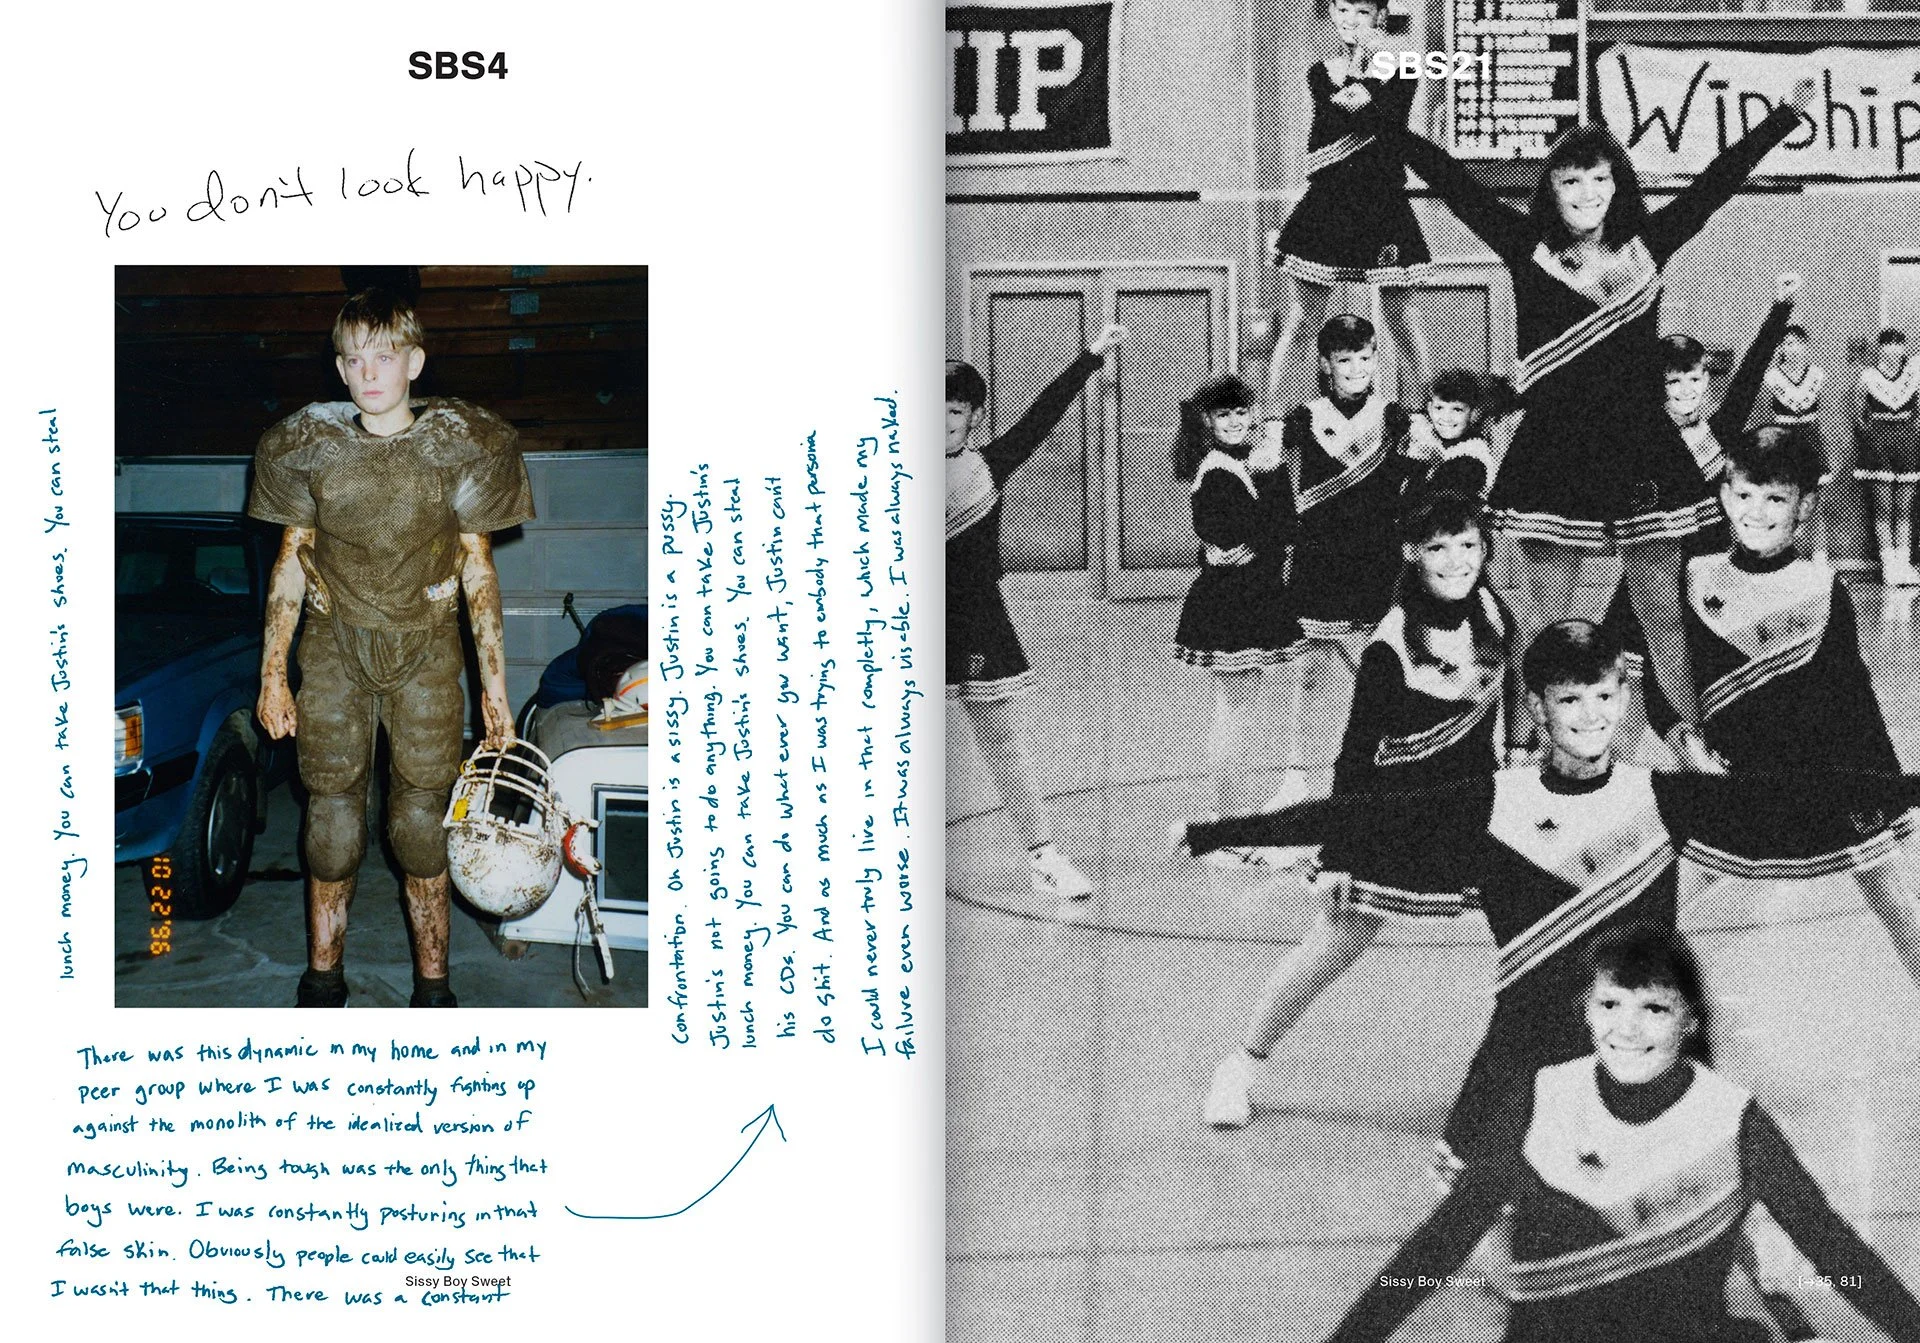 SBS4
You don't look happy.
10 22 '96
There was this dynamic in my home and in my
peer group where I was constantly fighting up
against the monolith of the idealized version of
masculinity. Being tough was the only thing that
boys were. I was constantly posturing in that
false skin. Obviously people could easily see that
I wasn't that thing. There was a constant
Confrontation. Oh Justin is a sissy. Justin is a pussy.
Justin's not going to do anything. You can take Justin's
lunch money. You can take Justin's shoes. You can steal
his CDs. You can do what ever you want, Justin can't
do shit. And as much as I was trying to embody that persona
I could never truly live in that completly, which made my
failure even worse. It was always visable. I was always naked.
You can take Justin's shoes. You can steal
lunch money.
Sissy Boy Sweet
SBS21
IP
Winship
Sissy Boy Sweet
[→35, 81]